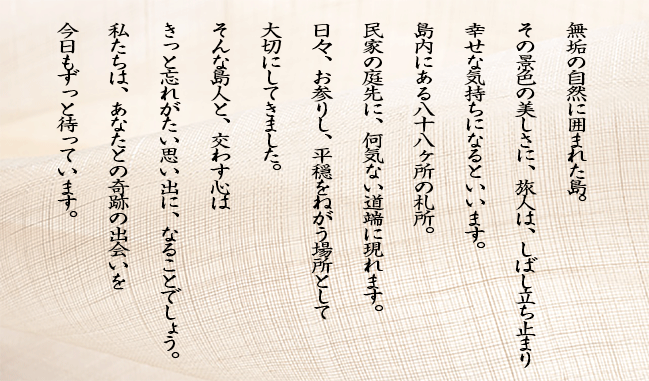 無垢の自然に囲まれた島。
その景色の美しさに、旅人は、しばし立ち止まり
幸せな気持ちになるといいます。
島内にある八十八ヶ所の札所。
民家の庭先に、何気ない道端に現れます。
日々、お参りし、平穏をねがう場所として
大切にしてきました。
そんな島人と、交わす心は
きっと忘れがたい思い出に、なることでしょう。
私たちは、あなたとの奇跡の出会いを
今日もずっと待っています。